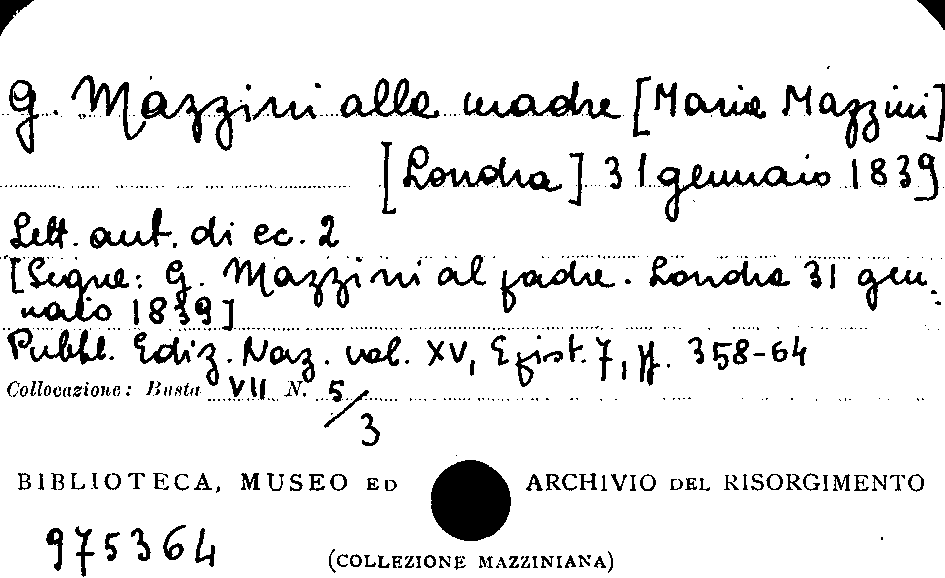 G. Mazzini alla madre [Maria Mazzini]
[Londra] 31 gennaio 1839
Lett. aut. di cc. 2
[Segue: G. Mazzini al padre. Londra 31 gen-
naio 1839]
Pubbl. Ediz. Naz. vol. XV, Epist. 7, pp. 358-64
Collocazione: Busta VII N. 5/3
BIBLIOTECA, MUSEO ED ARCHIVIO DEL RISORGIMENTO
975364
(COLLEZIONE MAZZINIANA)